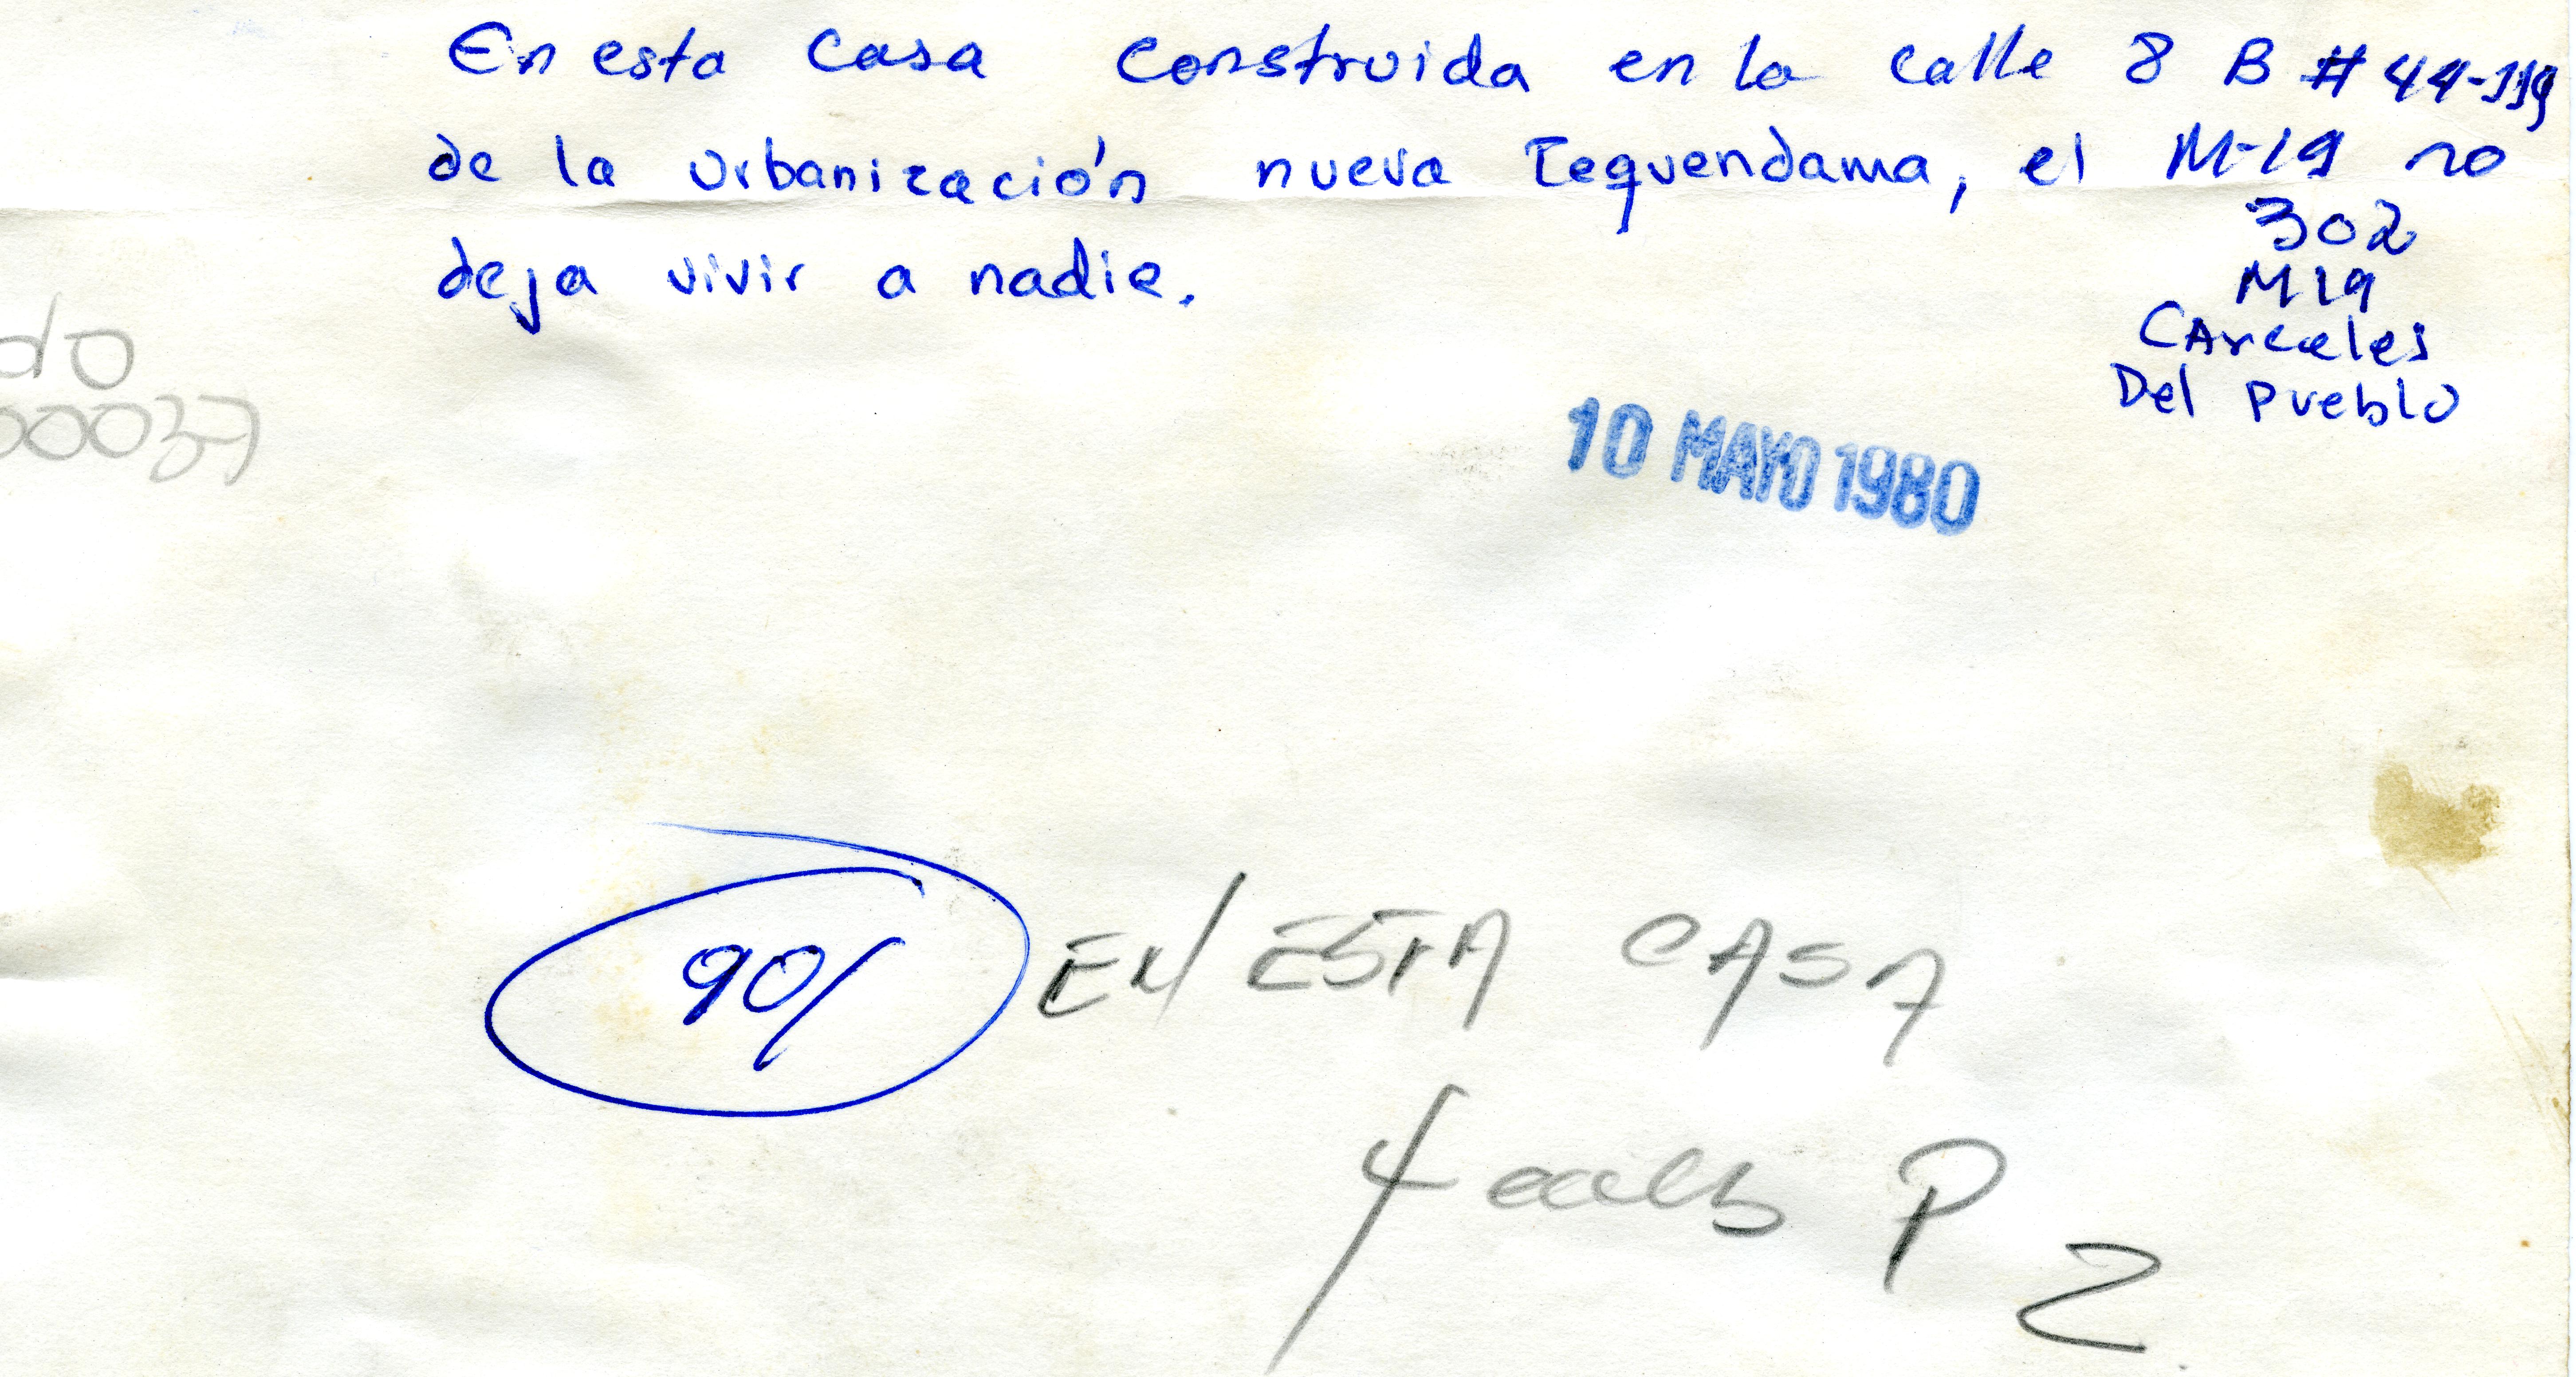 En esta casa construida en la calle 8 B # 44-119
de la urbanización nueva Tequendama, el M-19 no
deja vivir a nadie.
302
M19
CArceles
Del Pueblo
do
00037
10 MAYO 1980
90/
EN ESTA CASA
4 cols P
2